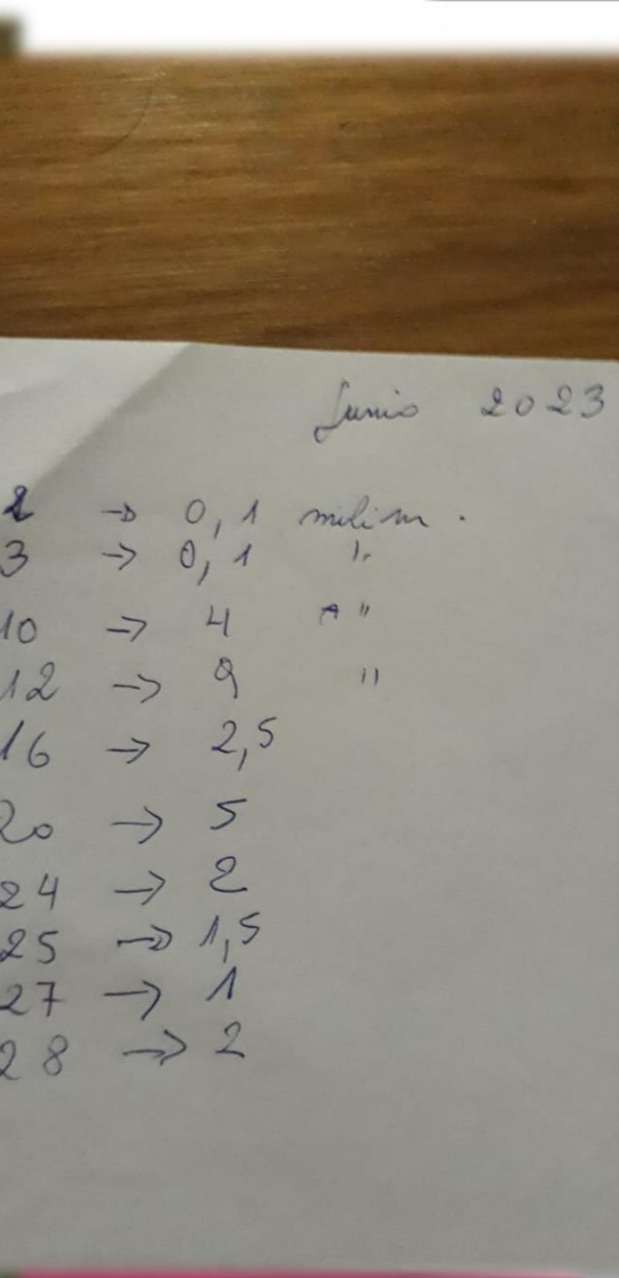 Junio 2023
2 → 0,1 milim.
3 → 0,1 "
10 → 4 "
12 → 9 "
16 → 2,5
20 → 5
24 → 2
25 → 1,5
27 → 1
28 → 2